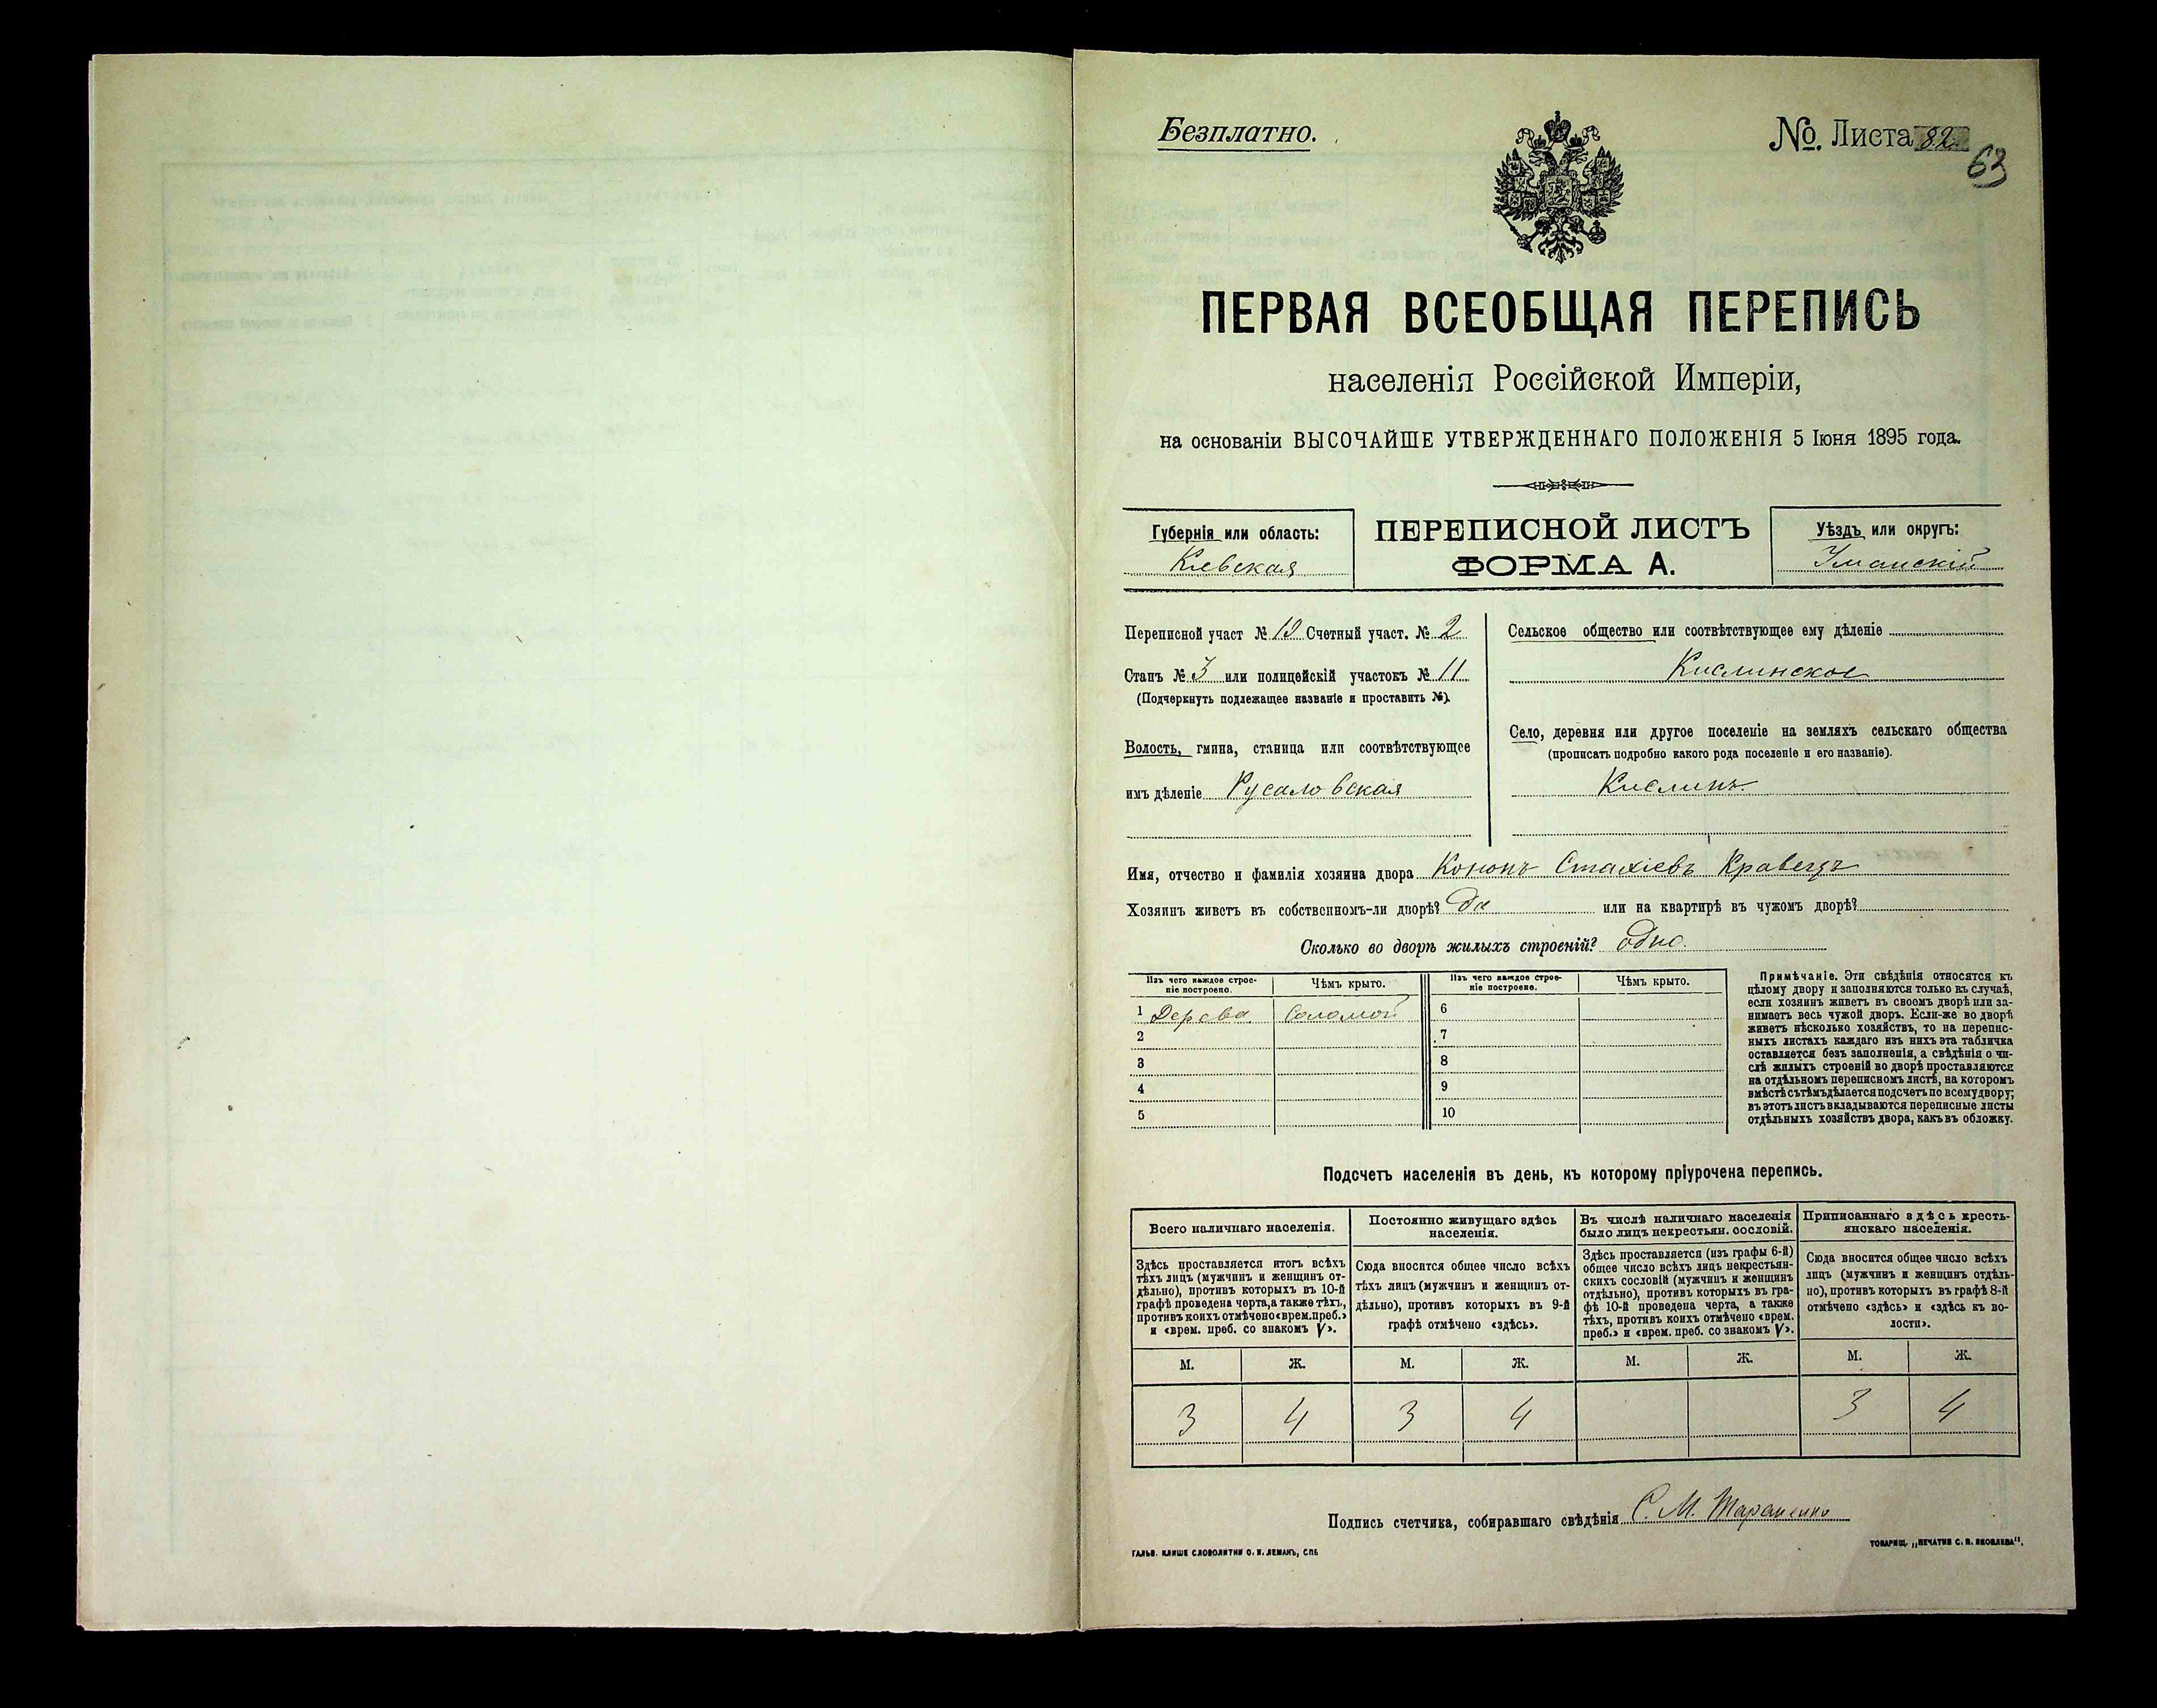 Безплатно.
№. Листа 82
63
ПЕРВАЯ ВСЕОБЩАЯ ПЕРЕПИСЬ
населенія Россійской Имперіи,
на основаніи ВЫСОЧАЙШЕ УТВЕРЖДЕННАГО ПОЛОЖЕНІЯ 5 Іюня 1895 года.
Губернія или область:
Кіевская
ПЕРЕПИСНОЙ ЛИСТЪ
ФОРМА А.
Уѣздъ или округъ:
Уманскій
Переписной участ № 19 Счетный участ. № 2
Станъ № 3 или полицейскій участокъ № 11
(Подчеркнуть подлежащее названіе и проставить №).
Волость, гмина, станица или соотвѣтствующее
имъ дѣленіе Русаловская
Сельское общество или соотвѣтствующее ему дѣленіе
Кислинское
Село, деревня или другое поселеніе на земляхъ сельскаго общества
(прописать подробно какого рода поселеніе и его названіе).
Кислинъ
Имя, отчество и фамилія хозяина двора Кононъ Стахіевъ Кравецъ
Хозяинъ живетъ въ собственномъ-ли дворѣ? да или на квартирѣ въ чужомъ дворѣ?
Сколько во дворѣ жилыхъ строеній? одно.
Изъ чего каждое строе-
ніе построено.
Чѣмъ крыто.
Изъ чего каждое строе-
ніе построено.
Чѣмъ крыто.
1 Дерева Соломой 6
2 7
3 8
4 9
5 10
Примѣчаніе. Эти свѣдѣнія относятся къ
цѣлому двору и заполняются только въ случаѣ,
если хозяинъ живетъ въ своемъ дворѣ или за-
нимаетъ весь чужой дворъ. Если-же во дворѣ
живетъ нѣсколько хозяйствъ, то на перепис-
ныхъ листахъ каждаго изъ нихъ эта табличка
оставляется безъ заполненія, а свѣдѣнія о чи-
слѣ жилыхъ строеній во дворѣ проставляются
на отдѣльномъ переписномъ листѣ, на которомъ
вмѣстѣ съ тѣмъ дѣлается подсчетъ по всему двору;
въ этотъ листъ вкладываются переписные листы
отдѣльныхъ хозяйствъ двора, какъ въ обложку.
Подсчетъ населенія въ день, къ которому пріурочена перепись.
Всего наличнаго населенія.
Здѣсь проставляется итогъ всѣхъ
тѣхъ лицъ (мужчинъ и женщинъ от-
дѣльно), противъ которыхъ въ 10-й
графѣ проведена черта, а также тѣхъ,
противъ коихъ отмѣчено «врем. преб.»
и «врем. преб. со знакомъ V».
Постоянно живущаго здѣсь
населенія.
Сюда вносится общее число всѣхъ
тѣхъ лицъ (мужчинъ и женщинъ от-
дѣльно), противъ которыхъ въ 9-й
графѣ отмѣчено «здѣсь».
Въ числѣ наличнаго населенія
было лицъ некрестьян. сословій.
Здѣсь проставляется (изъ графы 6-й)
общее число всѣхъ лицъ некрестьян-
скихъ сословій (мужчинъ и женщинъ
отдѣльно), противъ которыхъ въ гра-
фѣ 10-й проведена черта, а также
тѣхъ, противъ коихъ отмѣчено «врем.
преб.» и «врем. преб. со знакомъ V».
Приписаннаго здѣсь кресть-
янскаго населенія.
Сюда вносится общее число всѣхъ
лицъ (мужчинъ и женщинъ отдѣль-
но), противъ которыхъ въ графѣ 8-й
отмѣчено «здѣсь» и «здѣсь къ во-
лости».
М. Ж. М. Ж. М. Ж. М. Ж.
3 4 3 4 3 4
Подпись счетчика, собиравшаго свѣдѣнія С. М. Тараненко
ГАЛЬВ. КЛИШЕ СЛОВОЛИТНИ О. И. ЛЕМАНЪ, СПБ
ТОВАРИЩ. „ПЕЧАТНЯ С. П. ЯКОВЛЕВА“.